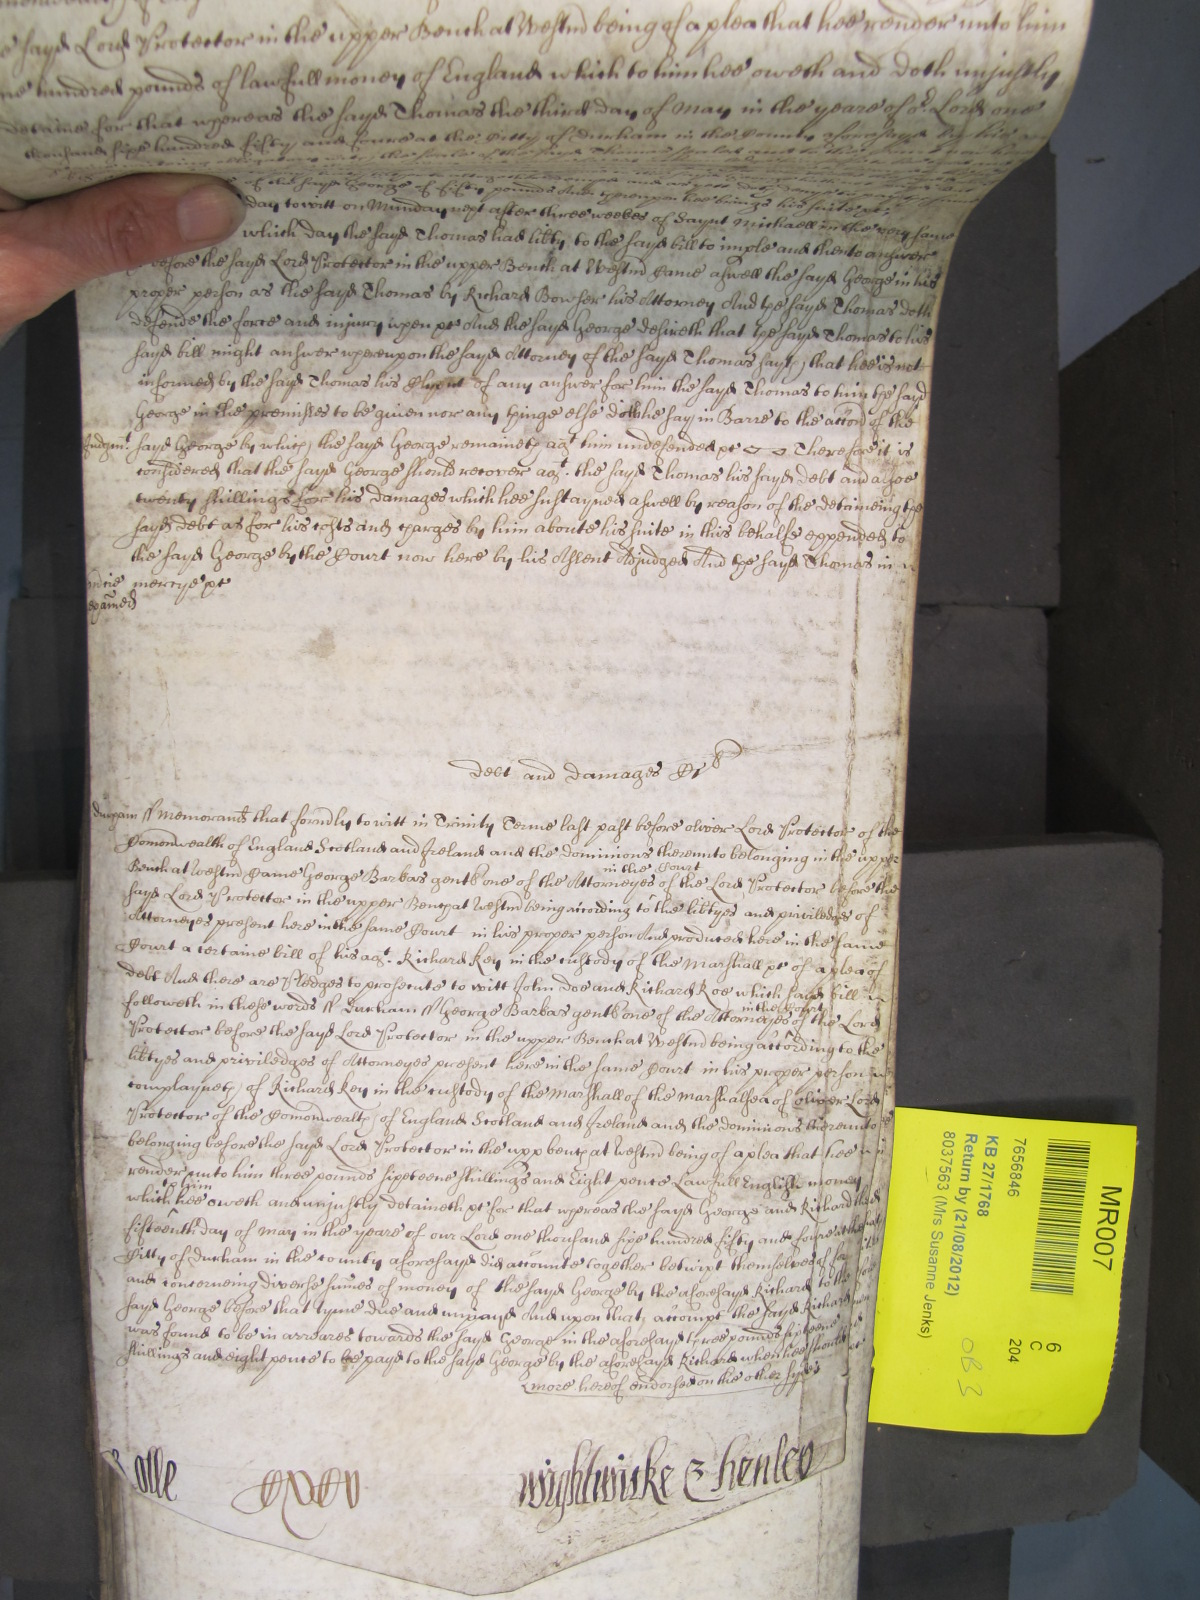 sayd Lord Protector in the upper Bench at Westm̃ being of a plea that hee render unto him
hundred pounds of lawfull money of England which to him hee oweth and doth unjustly
detaine for that whereas the sayd Thomas the third day of May in the yeare of oʳ Lord one
thousand sixe hundred fifty and foure at the Citty of Durham in the County aforesayd by his
of the sayd George of fifty pounds And whereupon hee brings his suite &c
day to witt on Munday next after three weekes of Saynt Michaell in the very same
which day the sayd Thomas had lib̃ty to the sayd bill to imple and then to answer
before the sayd Lord Protector in the upper Bench at Westm̃ Came aswell the sayd George in his
proper person as the sayd Thomas by Richard Bowser his Attorney And the sayd Thomas doth
defende the force and injury when &c And the sayd George desireth that the sayd Thomas to his
sayd bill might answer whereupon the sayd Attorney of the sayd Thomas sayth that hee is not
informed by the sayd Thomas his Clyent of any answer for him the sayd Thomas to him the sayd
George in the premisses to be given nor any thinge else doth he say in Barre to the ac̃c̃on of the
Judgmᵗ sayd George by which the sayd George remaineth agᵗ him undefended &c Therefore it is
considered that the sayd George should recover agᵗ the sayd Thomas his sayd debt and alsoe
twenty shillings for his damages which hee sustayned aswell by reason of the detaineing the
sayd debt as for his costs and charges by him aboute his suite in this behalfe expended to
the sayd George by the Court now here by his Assent Adjudged And the sayd Thomas in
mercye &c
Debt and damages
Durham ss Memorand̃ that form̃ly to witt in Trinity Terme last past before Oliver Lord Protector of the
Com̃onwealth of England Scotland and Ireland and the dominions thereunto belonging in the upper
Bench at Westm̃ Came George Barkas gent one of the Attorneyes in the Court of the Lord Protector before the
sayd Lord Protector in the upper Bench at Westm̃ being according to the lib̃tyes and priviledges of
Attorneyes present here in the same Court in his proper person And produced here in the same
Court a certaine bill of his agᵗ Richard Key in the custody of the Marshall &c of a plea of
debt And there are Pledges to prosecute to witt John Doe and Richard Roe which sayd bill
followeth in these words ss Durham ss George Barkas gent one of the Attorneyes in the Court of the Lord
Protector before the sayd Lord Protector in the upper Bench at Westm̃ being according to the
lib̃tyes and priviledges of Attorneyes present here in the same Court in his proper person
complayneth of Richard Key in the custody of the Marshall of the Marshalsea of Oliver Lord
Protector of the Com̃onwealth of England Scotland and Ireland and the dominions thereunto
belonging before the sayd Lord Protector in the upp bench at Westm̃ being of a plea that hee
render unto him three pounds sixteene shillings and Eight pence Lawfull English money
which to him hee oweth and unjustly detaineth &c for that whereas the sayd George and Richard the
fifteenth day of May in the yeare of our Lord one thousand sixe hundred fifty and foure at the
Citty of Durham in the county aforesayd did accounte together betwixt themselves of
and concerneing diverse sum̃es of money of the sayd George by the aforesayd Richard to the
sayd George before that tyme due and unpayd And upon that accompt the sayd Richard
was found to be in arreares towards the sayd George in the aforesayd three pounds sixteene
shillings and eight pence to be payd to the sayd George by the aforesayd Richard when hee should
more hereof endorsed on the other syde
Rolle
wightwicke & henley
MR007
7656846
KB 27/1768
Return by (21/08/2012)
8037563 (Mrs Susanne Jenks)
6
C
204
OB 3